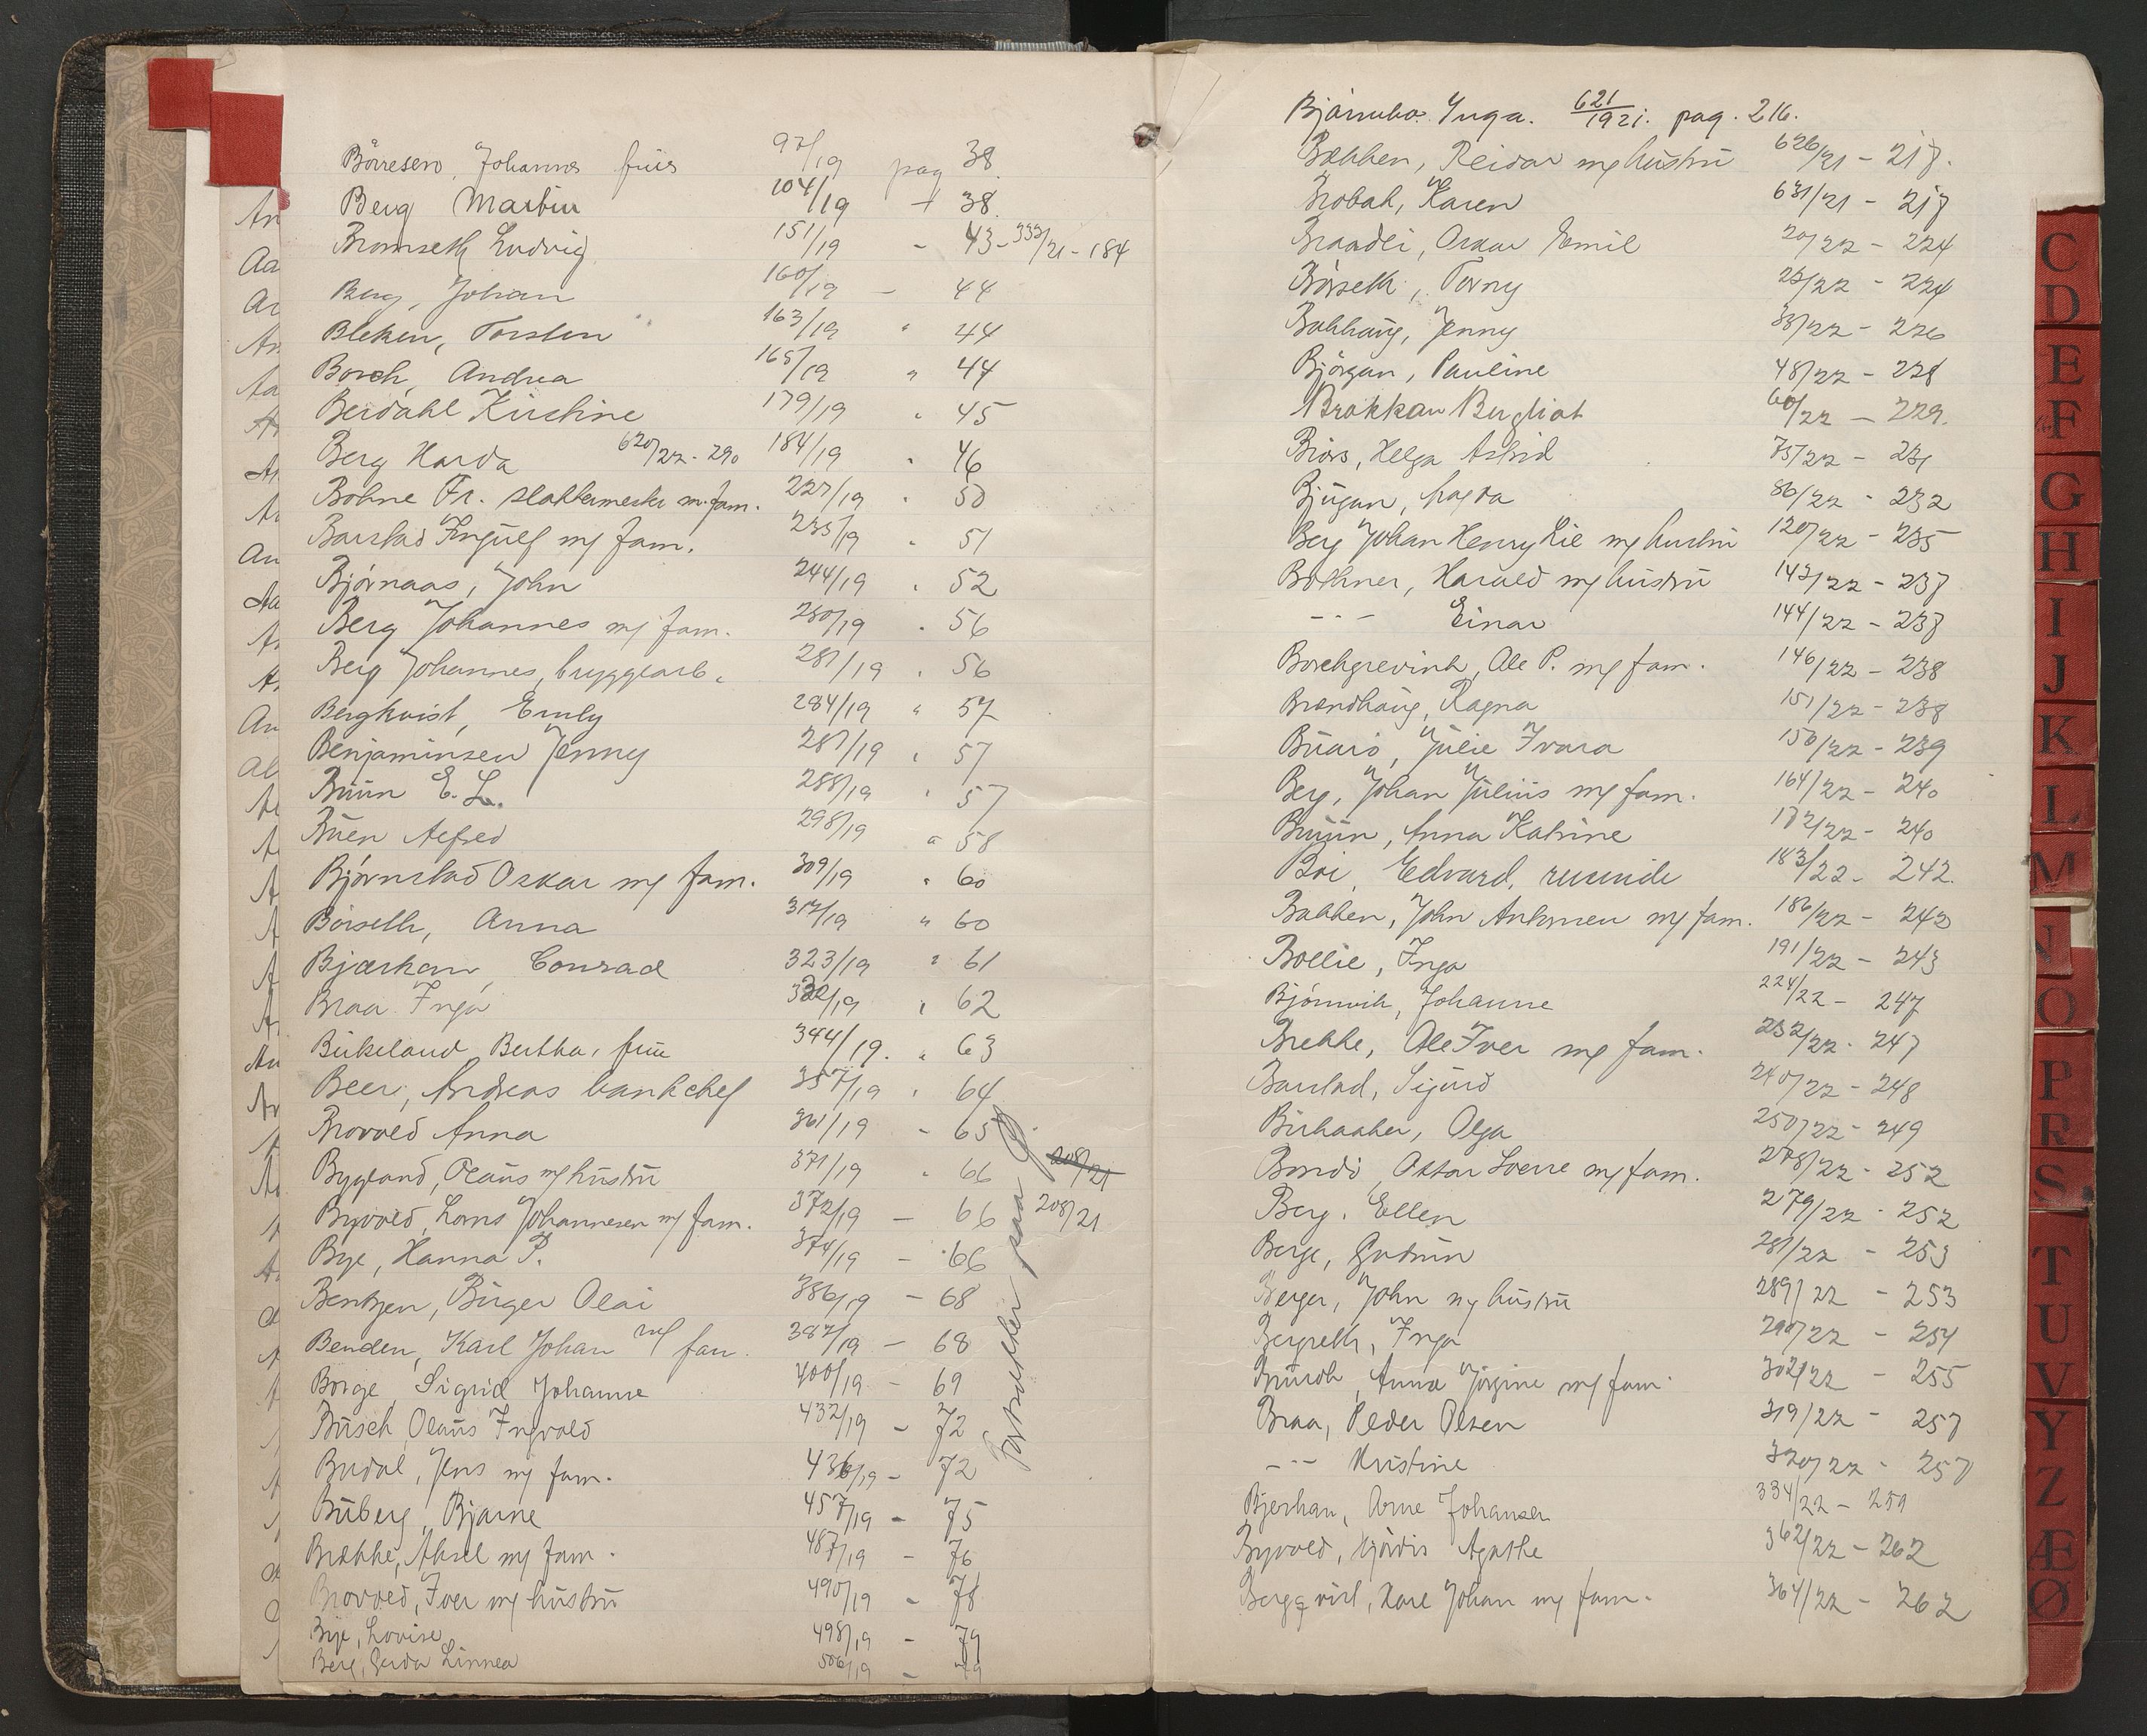 Börresen, Johannes frue 97/19 pag 38
Berg Martin 104/19 + 38
Bromseth Ludvig 151/19 - 43 - 333/21 - 184
Berg, Johan 160/19 - 44
Bleken, Torsten 163/19 " 44
Borch, Andrea 165/19 " 44
Berdahl Kirstine 179/19 " 45
Berg Harda 620/22 - 290 184/19 " 46
Bohne Fr. slaktermester m. fam. 227/19 " 50
Barstad Ingulf m/ fam. 235/19 " 51
Bjørnaas, John 244/19 " 52
Berg Johannes m/ fam. 280/19 " 56
Berg Johannes, bryggearb. 281/19 " 56
Bergkvist, Emly 284/19 " 57
Benjaminsen Jenny 287/19 " 57
Buun E. L. 288/19 " 57
Buen Alfred 298/19 " 58
Bjørnstad Oskar m/ fam. 309/19 " 60
Börseth, Anna 317/19 " 60
Bjærkan, Conrad 323/19 " 61
Braa Inga 332/19 " 62
Birkeland, Bertha, frue 344/19. " 63
Beer, Andreas bankchef 357/19 " 64
Brovold Anna 361/19 - 65
Bygland, Olaus m/ hustru 371/19 " 66 208/21
Byvold, Lorns Johannesen m/ fam. 372/19 - 66 208/21
Bye, Hanna P. 374/19 - 66
Bentzen, Birger Olai 386/19 - 68
Benden, Karl Johan m/ fam. 387/19 - 68
Borge, Sigrid Johanne 400/19 - 69
Busch, Olaus Ingvald 432/19 - 72
Budal, Jens m/ fam. 436/19 - 72
Buberg, Bjarne 457/19 - 75
Brække, Aksel m/ fam. 487/19 - 76
Brovold, Iver m/ hustru 490/19 - 78
Bye, Lovise 498/19 - 79
Berg, Gerda Linnea 506/19 - 79
Fortsætter paa
Bjørnebo Inga. 621/1921. pag. 216.
Bakken, Reidar m/ hustru 626/21 - 217.
Brobak, Karen 631/21 - 217
Braadli, Oskar Emil 20/22 - 224
Börseth, Torny 25/22 - 224
Bakhaug, Jenny 33/22 - 226
Björgan, Pauline 48/22 - 228
Brakkan Bergliot 60/22 - 229.
Brors, Helga Astrid 75/22 - 231
Bjugan, Magda 86/22 - 232
Berg Johan Henry Lie m/ hustru 120/22 - 235
Bothner, Harald m/ hustru 143/22 - 237
- - - Einar 144/22 - 237
Borchgrevink, Ole P. m/ fam. 146/22 - 238
Brendhaug, Ragna 151/22 - 238
Buarø, Julie Ivara 156/22 - 239
Berg, Johan Julius m/ fam. 164/22 - 240
Bruun, Anna Katrine 172/22 - 240
Boi, Edvard, 183/22 - 242.
Bakken, John Antonsen m/ fam. 186/22 - 243
Bollie, Inga 191/22 - 243
Bjørnvik, Johanne 224/22 - 247
Brekke, Ole Iver m/ fam. 232/22 - 247
Barstad, Sigurd 240/22 - 248
Birkaaker, Olga 250/22 - 249
Bondø, Ottar Sverre m/ fam. 278/22 - 252
Berg, Ellen 279/22 - 252
Berge, Gudrun 281/22 - 253
Berger, John m/ hustru 289/22 - 253
Bergseth, Inga 290/22 - 254
Anna Jørgine m/ fam. 302/22 - 255
Braa, Peder Olsen 319/22 - 257
- - - Kristine 320/22 - 257
Bjerkan, Arne Johansen 334/22 - 259
Byvold, Hjördis Agathe 362/22 - 262
Bergqvist, Karl Johan m/ fam. 364/22 - 262
C
D
E
F
G
H
I
J
K
L
M
N
O
P
R
S
T
U
V
Y
Z
Æ
Ø